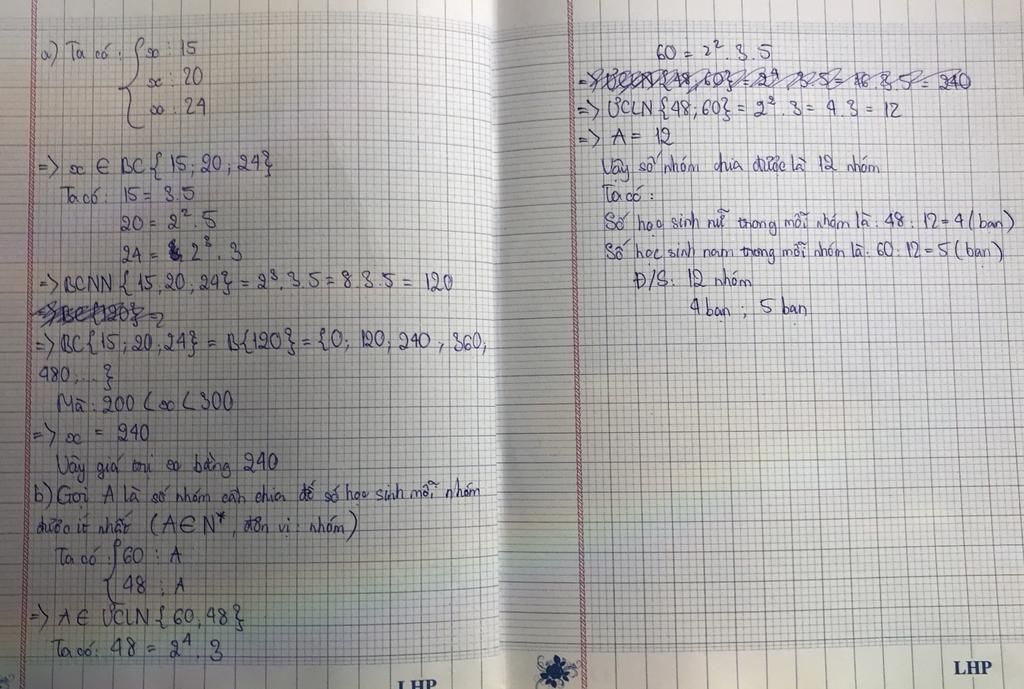 a) Ta có: { x : 15
x : 20
x : 24
=> x ∈ BC { 15; 20; 24}
Ta có: 15 = 3.5
20 = 2². 5
24 = 2³. 3
=> BCNN { 15, 20, 24} = 2³. 3. 5 = 8. 3. 5 = 120
=> BC{15; 20; 24} = B{120} = {0; 120; 240; 360;
480;...}
Mà: 200 < x < 300
=> x = 240
Vậy giá trị x bằng 240
b) Gọi A là số nhóm cần chia để số học sinh mỗi nhóm
được ít nhất (A ∈ N*, đơn vị: nhóm)
Ta có: { 60 : A
48 : A
=> A ∈ ƯCLN { 60, 48}
Ta có: 48 = 2⁴. 3
LHP
60 = 2². 3. 5
=> ƯCLN {48; 60} = 2². 3 = 4. 3 = 12
=> A = 12
Vậy số nhóm chia được là 12 nhóm
Ta có:
Số học sinh nữ trong mỗi nhóm là: 48 : 12 = 4 (bạn)
Số học sinh nam trong mỗi nhóm là: 60 : 12 = 5 (bạn)
Đ/S: 12 nhóm
4 bạn; 5 bạn
LHP